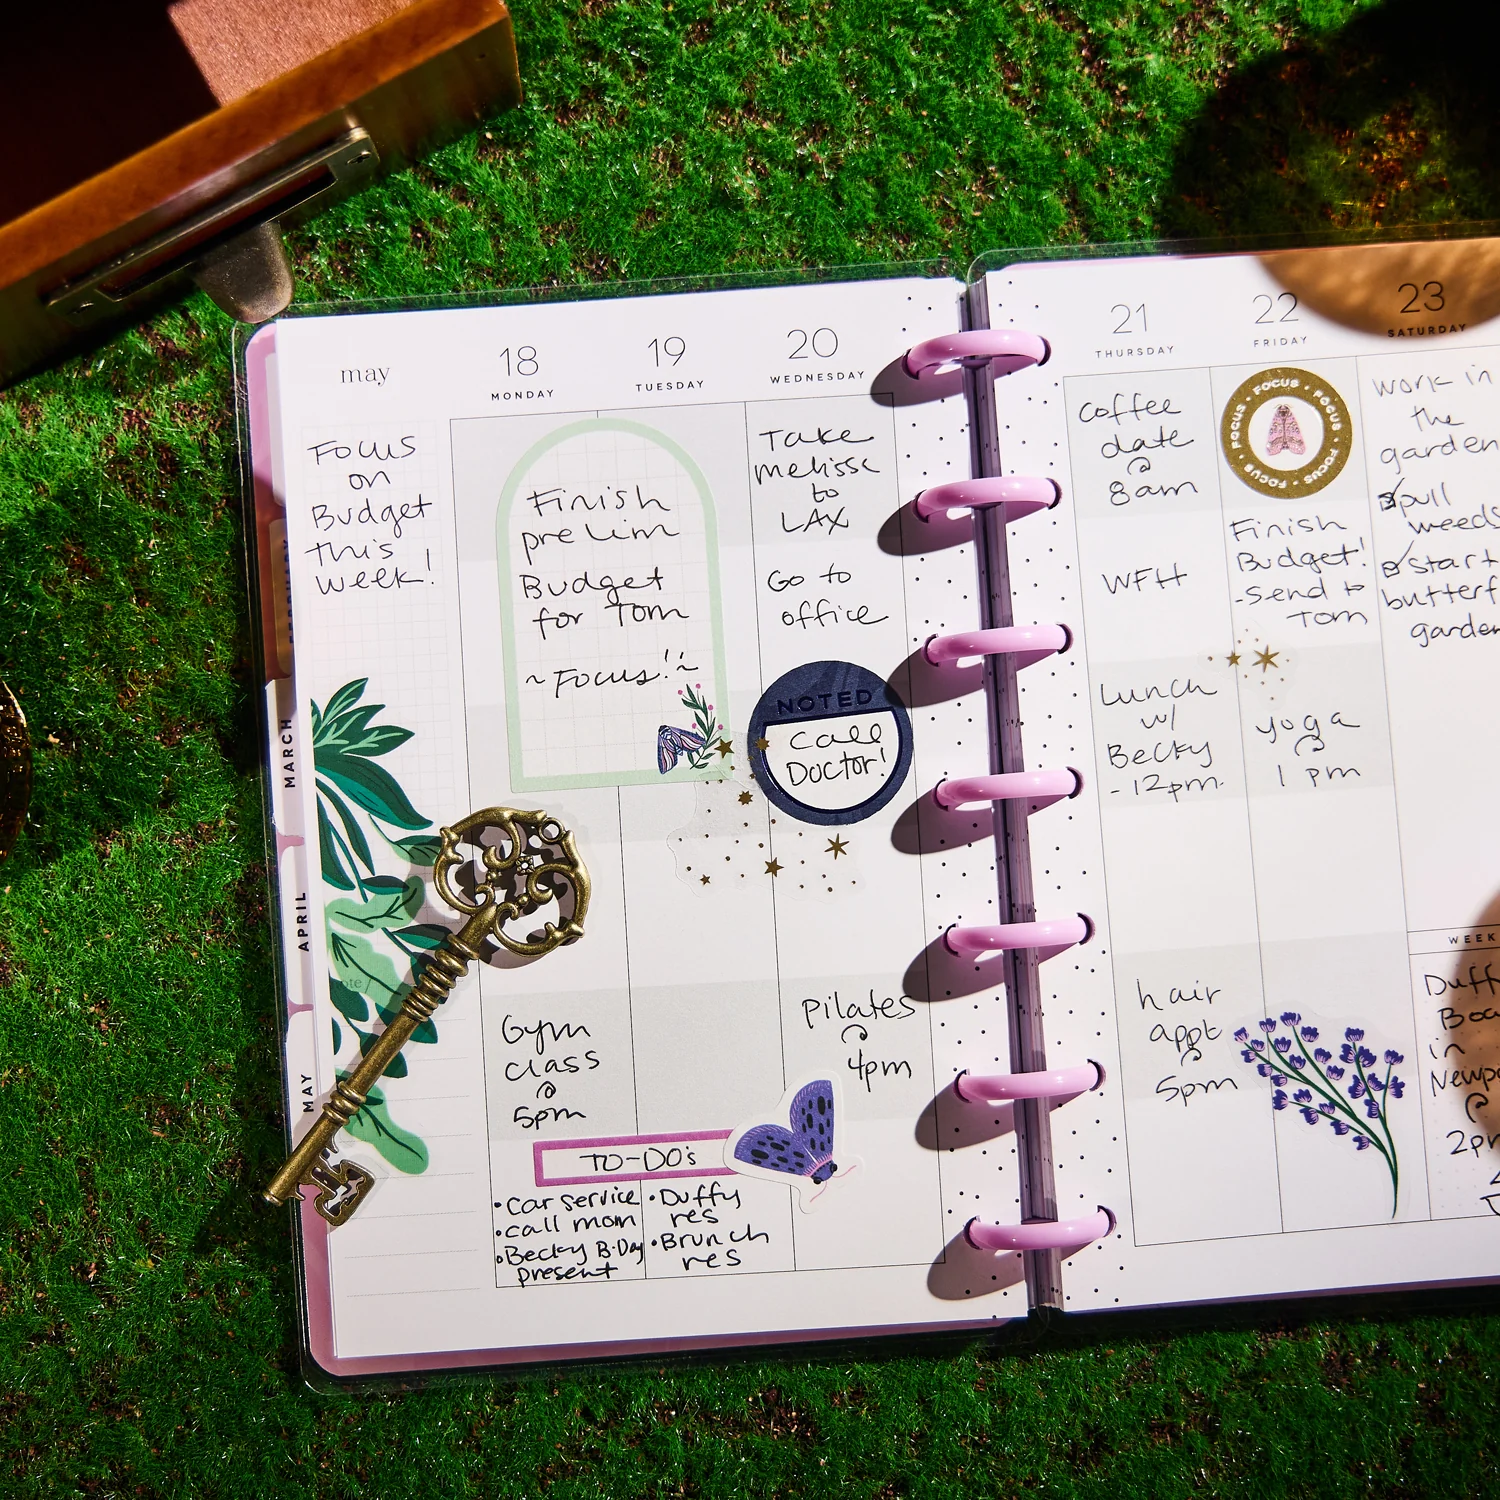 may
18
MONDAY
19
TUESDAY
20
WEDNESDAY
21
THURSDAY
22
FRIDAY
23
SATURDAY
Focus
on
Budget
this
week!
Finish
prelim
Budget
for Tom
~Focus!~
Gym
class
@
5pm
TO-DO's
•Car service
•call mom
•Becky B-Day
present
•Duffy
res
•Brunch
res
Take
melissa
to
LAX
Go to
office
NOTED
Call
Doctor!
Pilates
@
4pm
Coffee
date
@
8am
WFH
Lunch
w/
Becky
-12pm-
hair
appt
@
5pm
FOCUS • FOCUS • FOCUS • FOCUS • FOCUS •
Finish
Budget!
-Send to
Tom
yoga
@
1 pm
work in
the
garden
pull
weeds
start
garden
WEEK
in
@
MARCH
APRIL
MAY